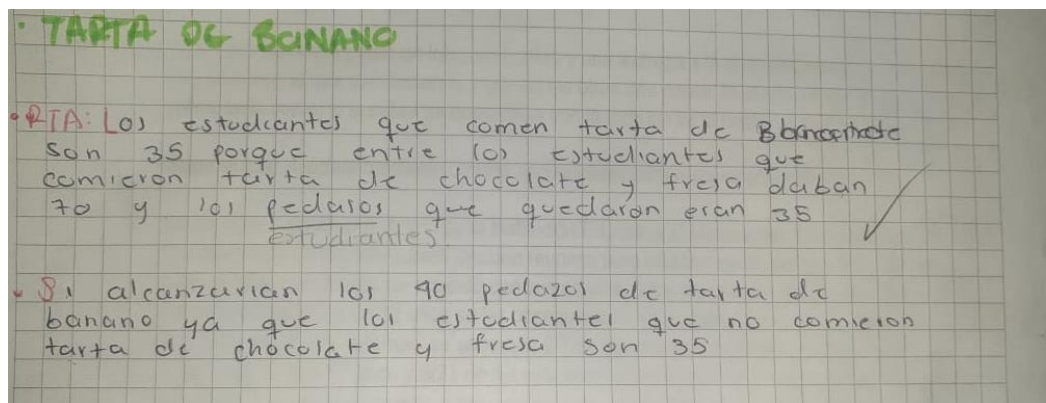 · TARTA DE BANANO
· RTA: Los estudiantes que comen tarta de
son 35 porque entre los estudiantes que
comieron tarta de chocolate y fresa daban
70 y los pedasos que quedaron eran 35
estudiantes
· Si alcanzarian los 40 pedazos de tarta de
banano ya que los estudiantes que no comieron
tarta de chocolate y fresa son 35